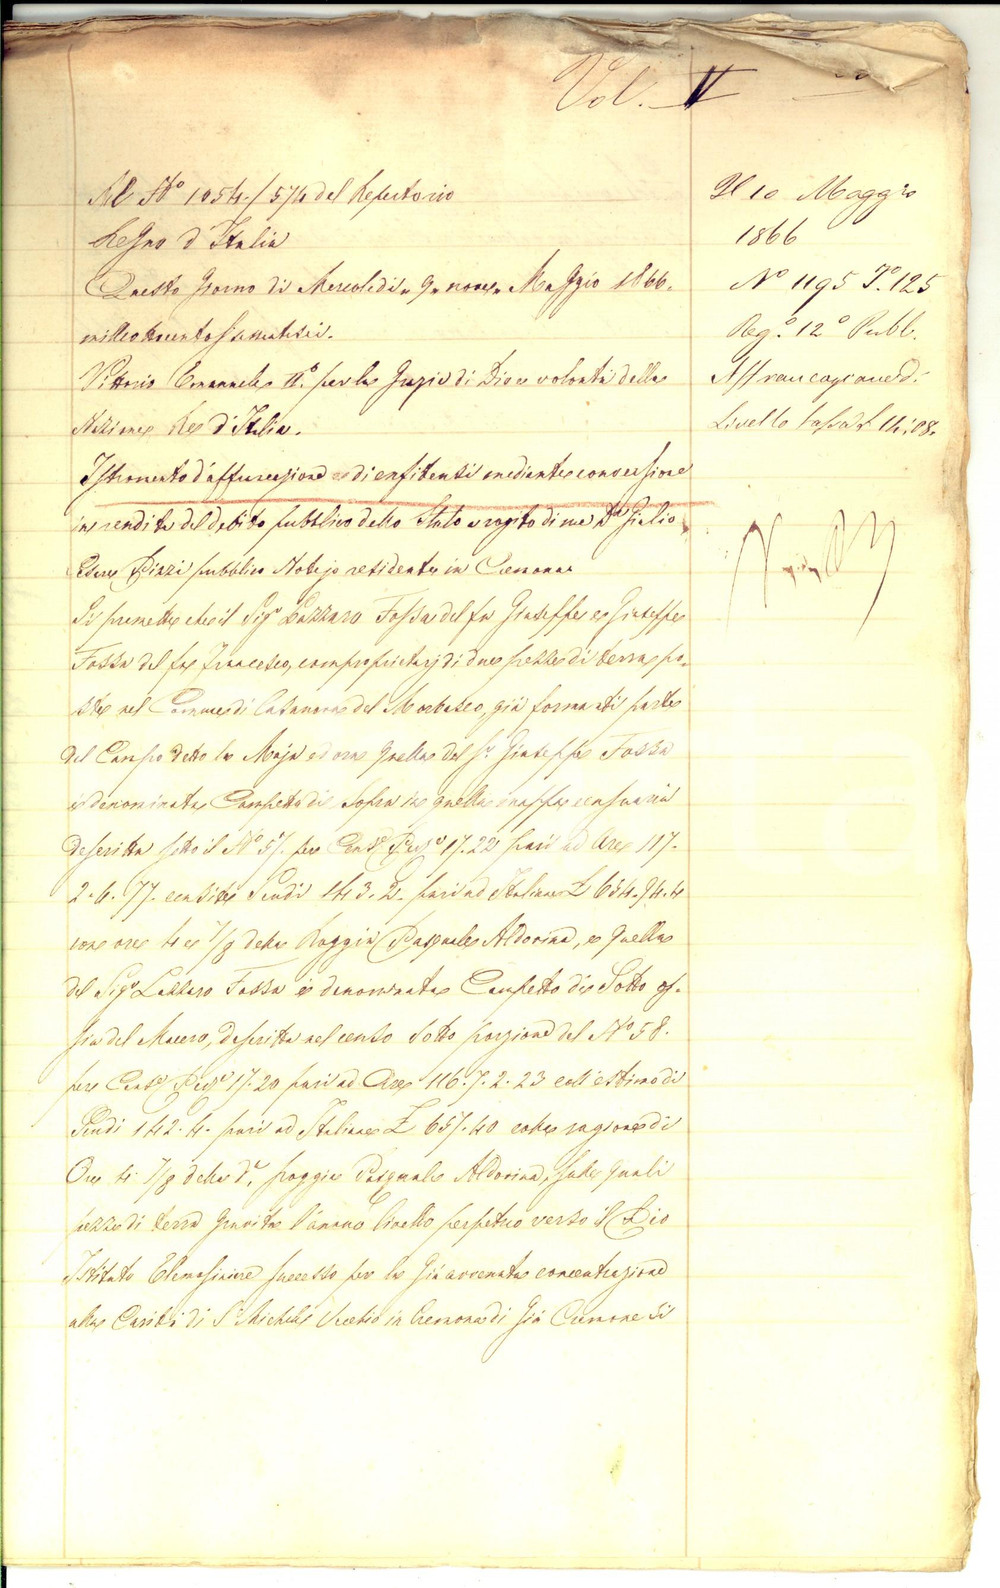 Vol. V
Al N.º 1054/574 del Repertorio
Regno d'Italia
Questo giorno di Mercoledì 9 nove Maggio 1866.
milleottocentosessantasei.
Vittorio Emanuele IIº per la Grazia di Dio e volontà della
Nazione Re d'Italia.
Istromento d'affrancazione di enfiteusi mediante concessione
in rendita del debito pubblico dello Stato a rogito di me Dr Giulio
Cesare Piazzi pubblico Notajo residente in Cremona
Si premette che il Sigr Lazzaro Fassa del fu Giuseppe e Giuseppe
Fassa del fu Francesco, comproprietarj di due pezze di terra po-
ste nel Comune di Casanova del Morbasco, già formanti parte
del Campo detto la Maja ed ora quella del Sr Giuseppe Fassa
è denominata Campetto di Sopra in quella mappa censuaria
descritta sotto il Nº 57. per Cens. Per. 17.22 pari ad Are 117.
2.6.77. censita Scudi 143.2. pari ad Italiane L 654.94.4
con ore 4 e 7/8 della Roggia Pasquale Aldovina, e quella
del Sigr Lazzaro Fassa è denominata Campetto di Sotto os-
sia del Macero, descritta nel censo sotto porzione del Nº 58.
per Cens. Per. 17.20 pari ad Are 116.7.2.23 coll'estimo di
Scudi 142.4. pari ad Italiane L 651.40 colla ragione di
Ore 4 7/8 della da Roggia Pasquale Aldovina, sulle quali
pezze di terra gravita l'annuo livello perpetuo verso il Pio
Istituto Elemosiniere successo per la già avvenuta concentrazione
alla Carità di S. Michele Vecchio in Cremona di già Cremone si
Il 10 Maggio
1866
Nº 1195 Fº 125
Reg.º 12º Pubb.
Affrancazione di
Livello tassa L 14:08.